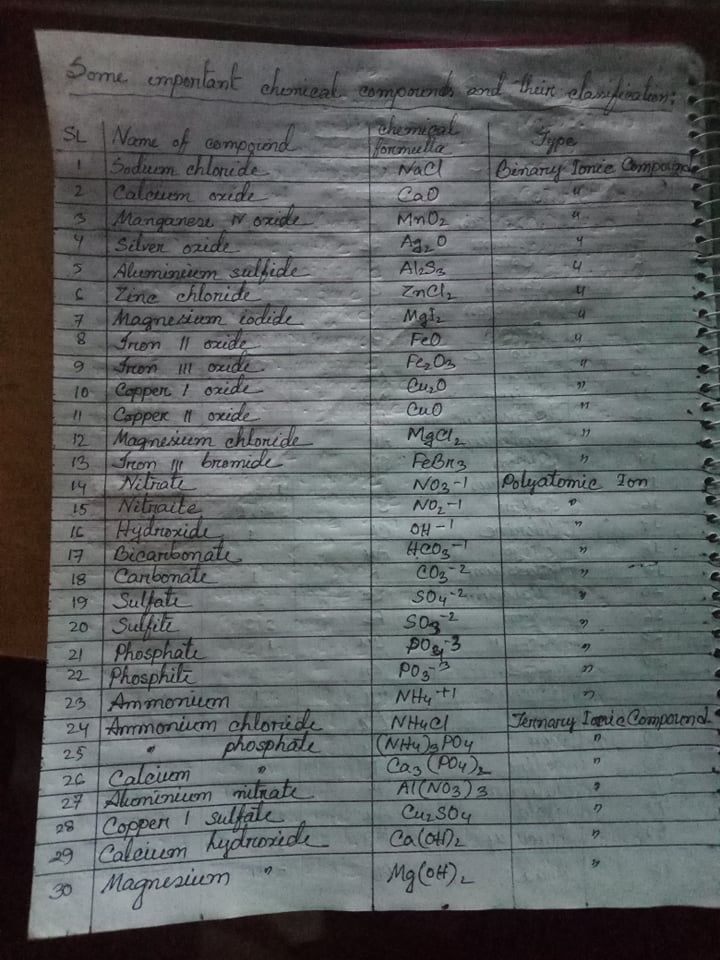 Some important chemical compounds and their classification:
SL Name of compound chemical formulla Type
1 Sodium chloride NaCl Binary Ionic Compound
2 Calcium oxide CaO "
3 Manganese IV oxide MnO2 "
4 Silver oxide Ag2O "
5 Aluminium sulfide Al2S3 "
6 Zinc chloride ZnCl2 "
7 Magnesium iodide MgI2 "
8 Iron II oxide FeO "
9 Iron III oxide Fe2O3 "
10 Copper I oxide Cu2O "
11 Copper II oxide CuO "
12 Magnesium chloride MgCl2 "
13 Iron III bromide FeBr3 "
14 Nitrate NO3-1 Polyatomic Ion
15 Nitraite NO2-1 "
16 Hydroxide OH-1 "
17 Bicarbonate HCO3-1 "
18 Carbonate CO3-2 "
19 Sulfate SO4-2 "
20 Sulfite SO3-2 "
21 Phosphate PO4-3 "
22 Phosphite PO3-3 "
23 Ammonium NH4+1 "
24 Ammonium chloride NH4Cl Ternary Ionic Compound
25 " phosphate (NH4)3PO4 "
26 Calcium " Ca3(PO4)2 "
27 Aluminium nitrate Al(NO3)3 "
28 Copper I sulfate Cu2SO4 "
29 Calcium hydroxide Ca(OH)2 "
30 Magnesium " Mg(OH)2 "